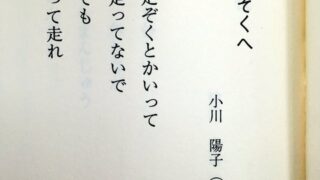 ぞくへ
小川 陽子（
走ぞくとかいって
走ってないで
ても
って走れ